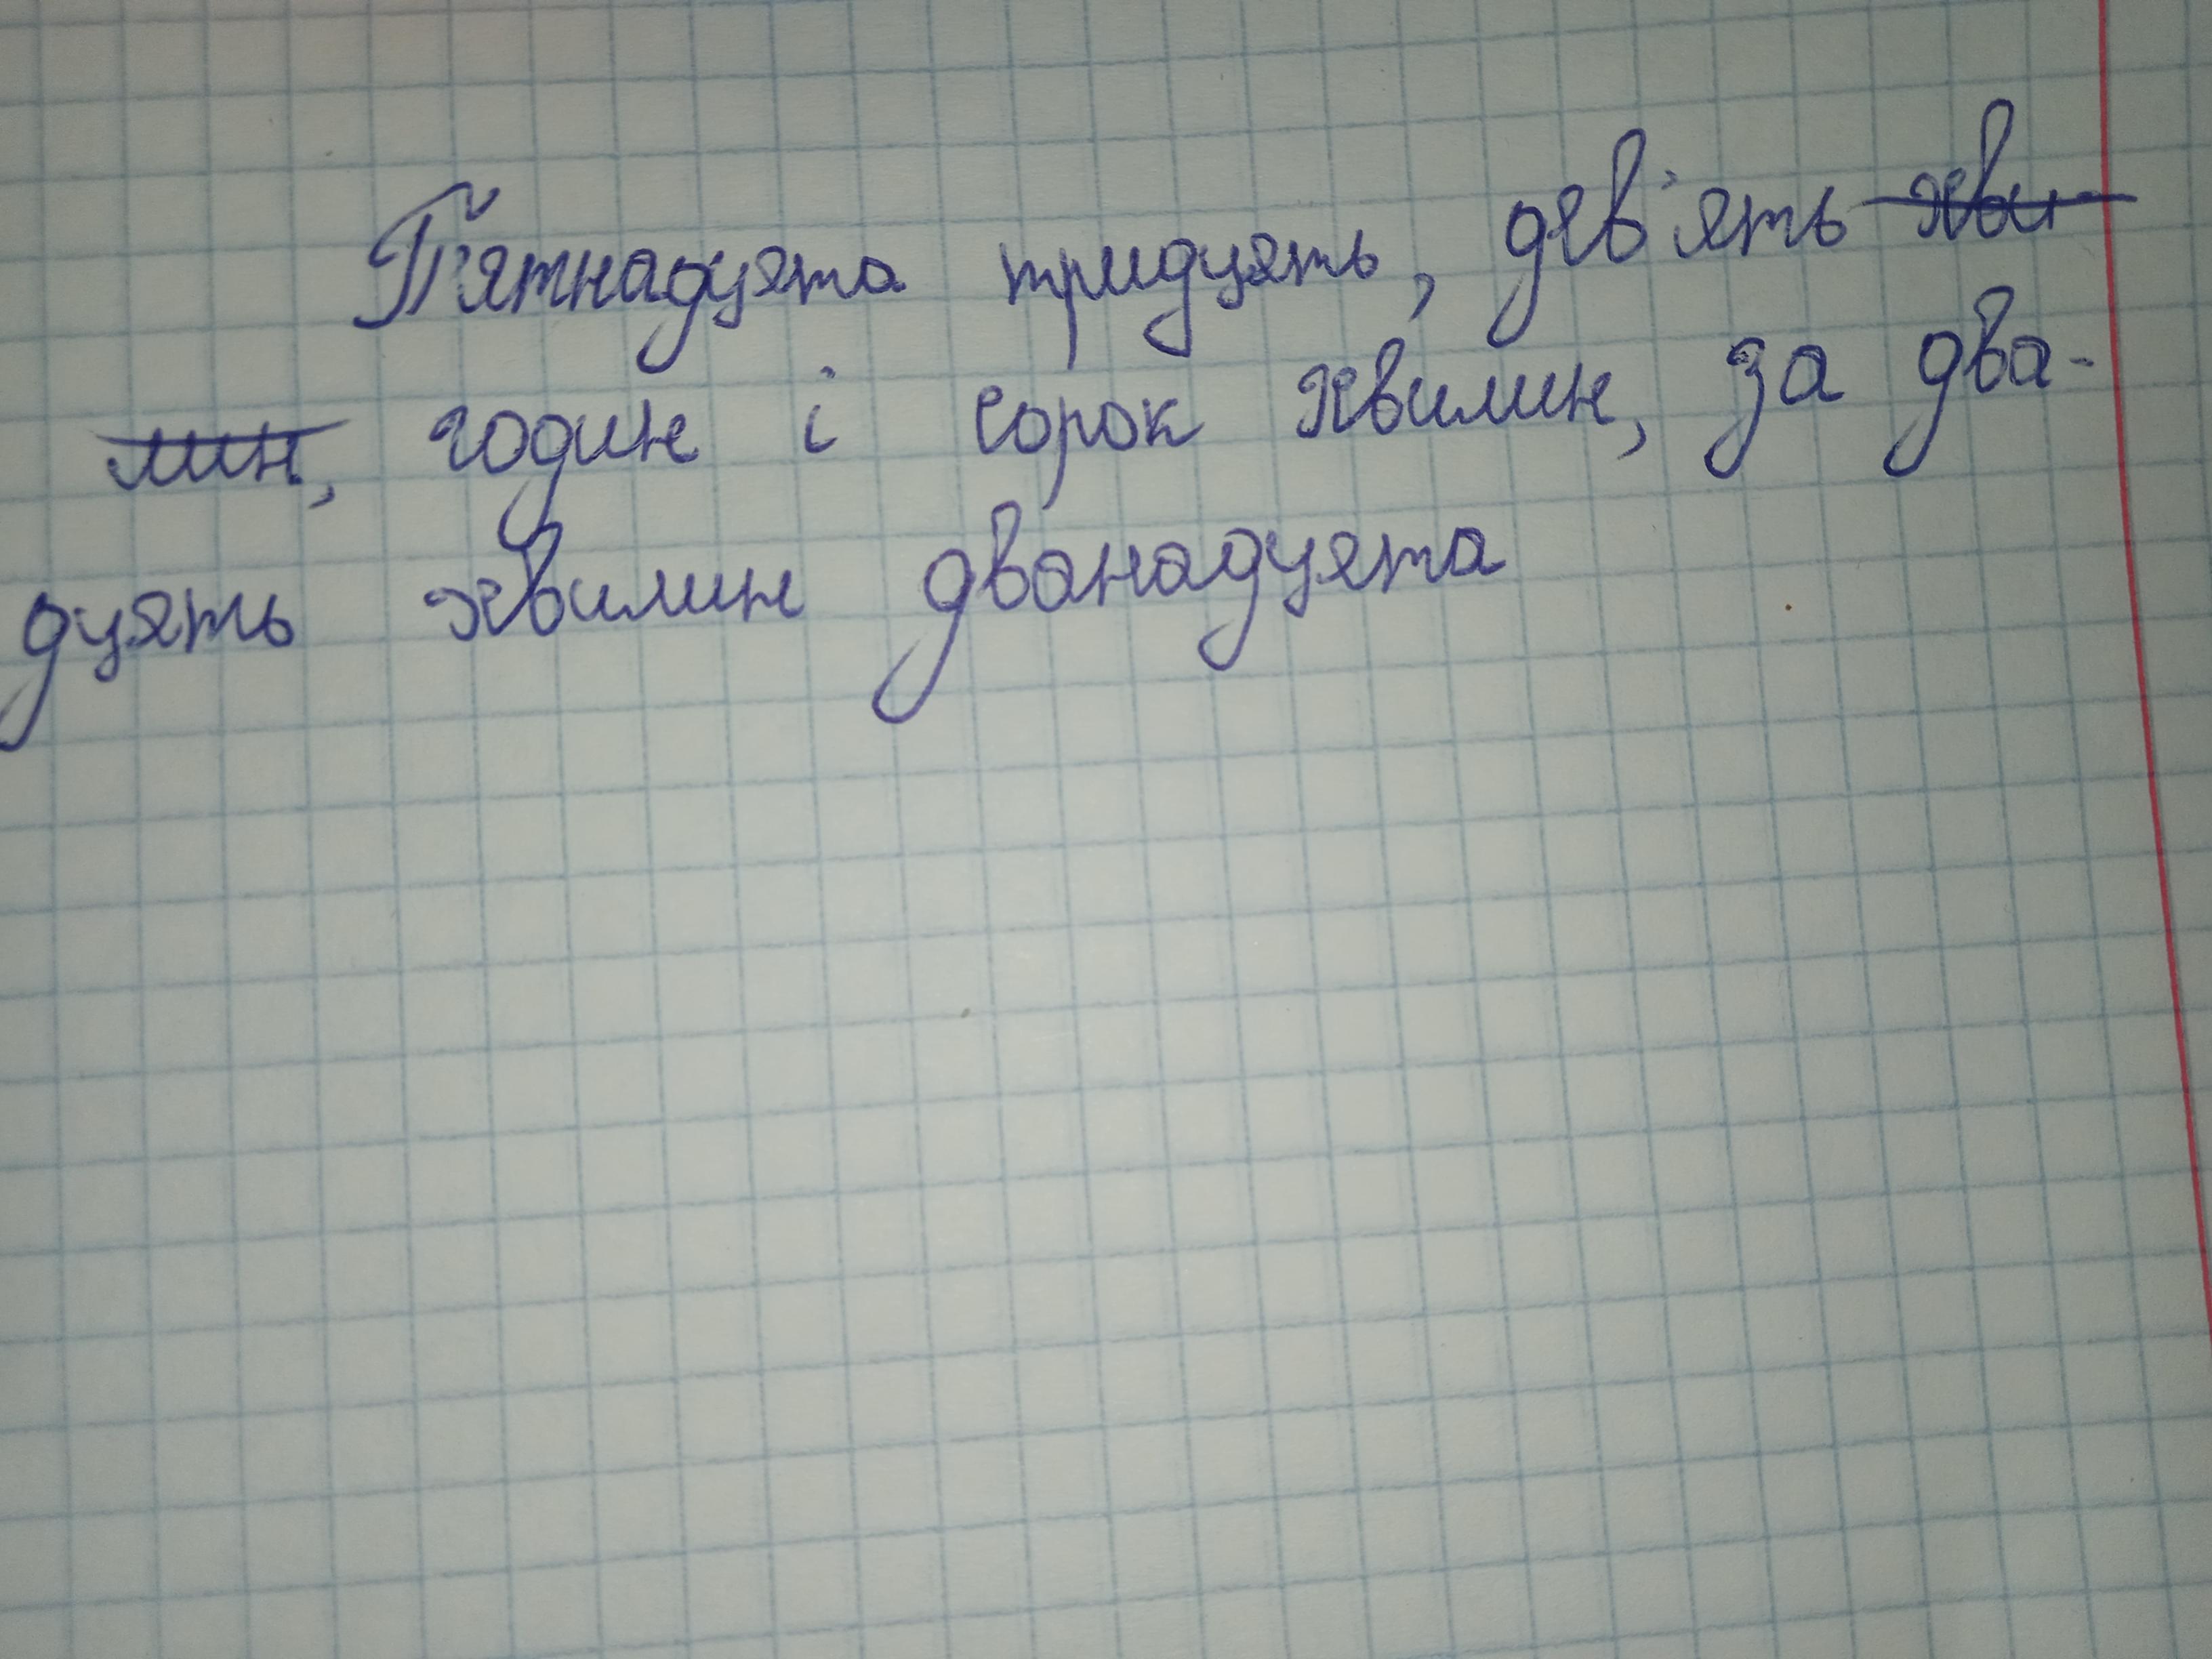 П'ятнадцята тридцять, дев'ять хви-
лин, годин і сорок хвилин, за два-
дцять хвилин дванадцята